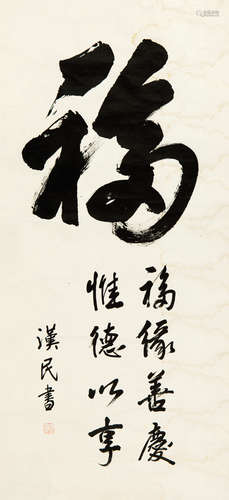 福
福緣善慶
惟德以享
漢民書